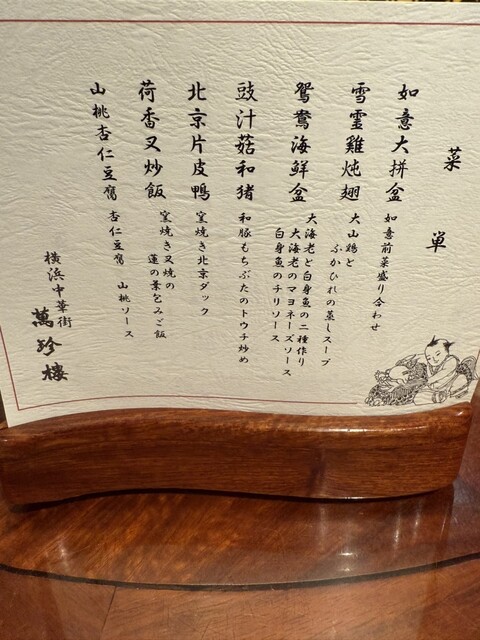 菜単
如意大拼盆
如意前菜盛り合わせ
雪霊雞炖翅
大山鶏と
ふかひれの蒸しスープ
鴛鴦海鮮盆
大海老と白身魚の二種作り
大海老のマヨネーズソース
白身魚のチリソース
豉汁菇和猪
和豚もちぶたのトウチ炒め
北京片皮鴨
窯焼き北京ダック
荷香叉炒飯
窯焼き叉焼の
蓮の葉包みご飯
山桃杏仁豆腐
杏仁豆腐 山桃ソース
横浜中華街
萬珍樓